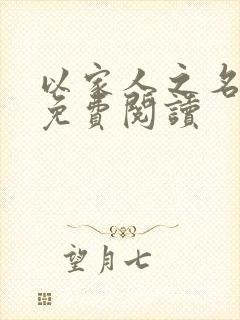 以家人之名
免費閱讀
望月七